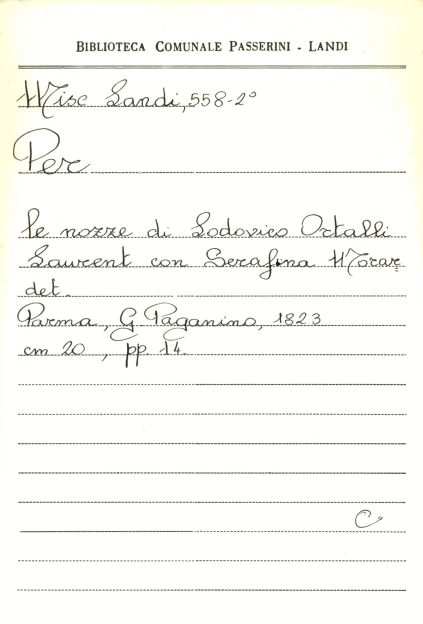 BIBLIOTECA COMUNALE PASSERINI - LANDI
Misc Landi, 558-2°
Per
le nozze di Lodovico Ortalli
Laurent con Serafina Morar
det.
Parma, G. Paganino, 1823
cm 20, pp. 14.
C